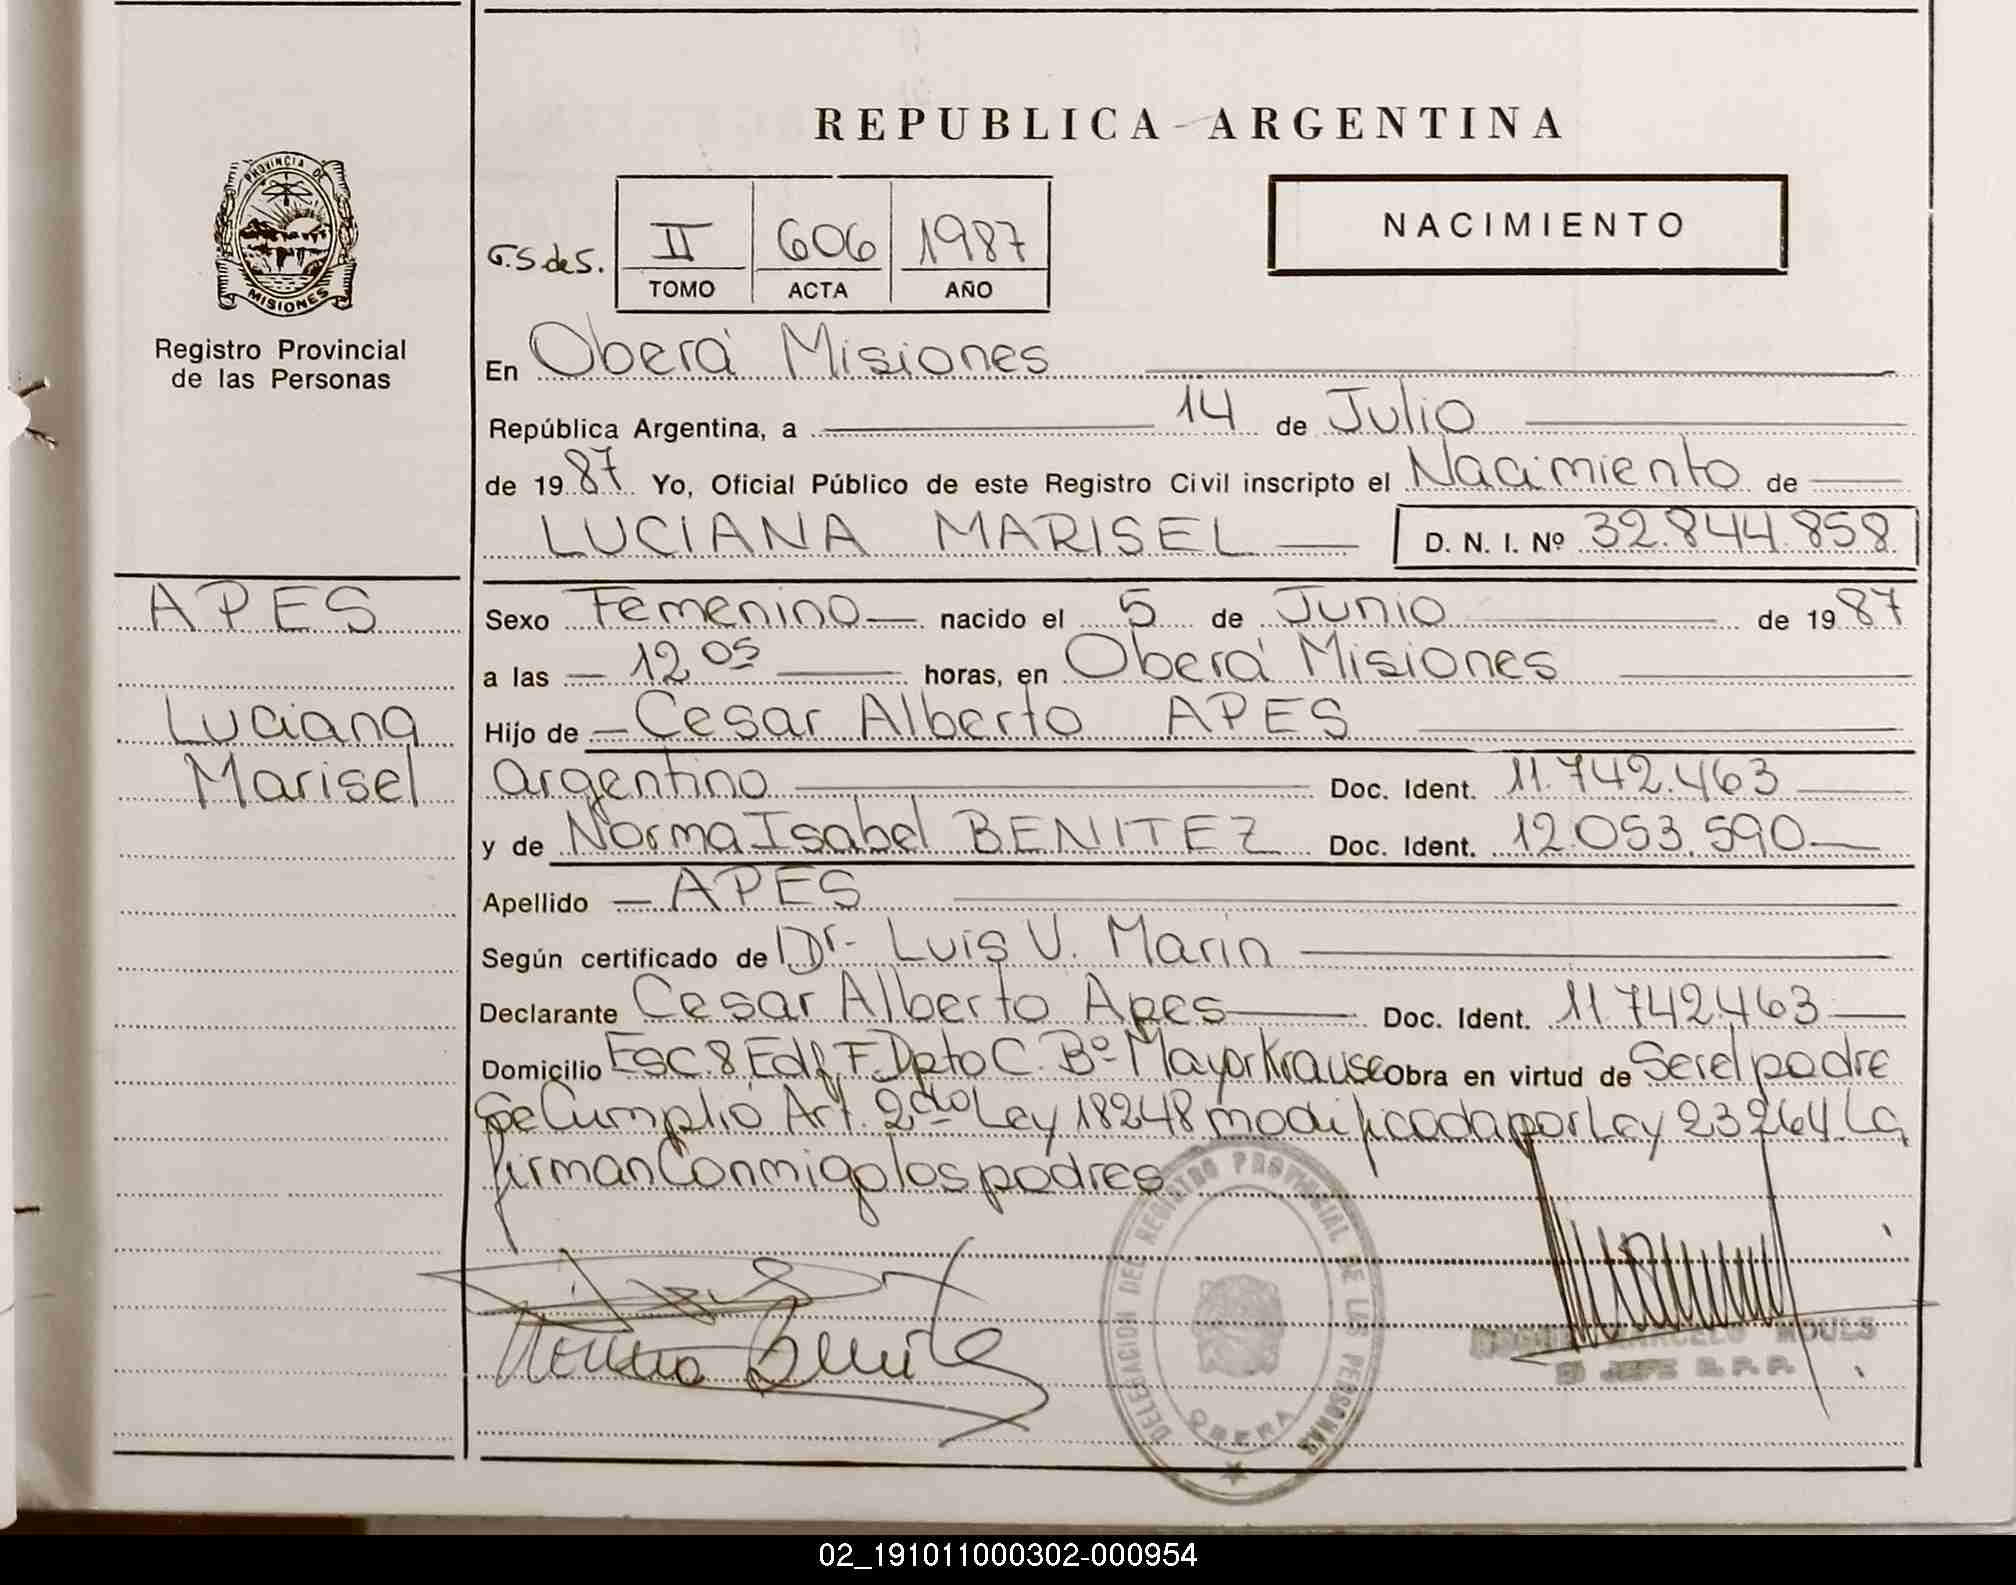 REPUBLICA ARGENTINA
PROVINCIA DE
MISIONES
Registro Provincial
de las Personas
G.S de S. II 606 1987
TOMO ACTA AÑO
NACIMIENTO
En Oberá Misiones
República Argentina, a 14 de Julio
de 1987 Yo, Oficial Público de este Registro Civil inscripto el Nacimiento de
LUCIANA MARISEL D. N. I. Nº 32.844.858
APES
Luciana
Marisel
Sexo Femenino nacido el 5 de Junio de 1987
a las 12 05 horas, en Oberá Misiones
Hijo de Cesar Alberto APES
argentino Doc. Ident. 11.742.463
y de Norma Isabel BENITEZ Doc. Ident. 12.053.590
Apellido APES
Según certificado de Dr. Luis V. Marin
Declarante Cesar Alberto Apes Doc. Ident. 11742463
Domicilio Esc. 8 Edf F. Dpto C. Bº Mayor Krause Obra en virtud de Ser el padre
Se Cumplió Art. 2do Ley 18248 modificada por Ley 23264 La
firman Conmigo los padres
Norma Benitez
DELEGACION DEL REGISTRO PROVINCIAL DE LAS PERSONAS
OBERA
JEFE R. P. P.
02_191011000302-000954